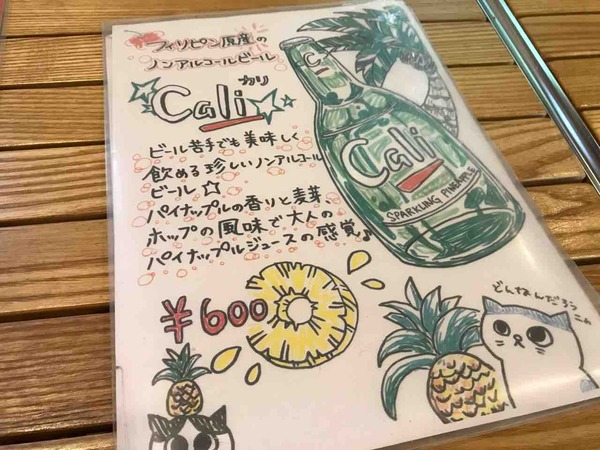 フィリピン原産の
ノンアルコールビール
カリ
Cali
ビール苦手でも美味しく
飲める珍しいノンアルコール
ビール☆
パイナップルの香りと麦芽、
ホップの風味で大人の
パイナップルジュースの感覚♪
¥600
Cali
Cali
SPARKLING PINEAPPLE
どんなんだろう
ニャ